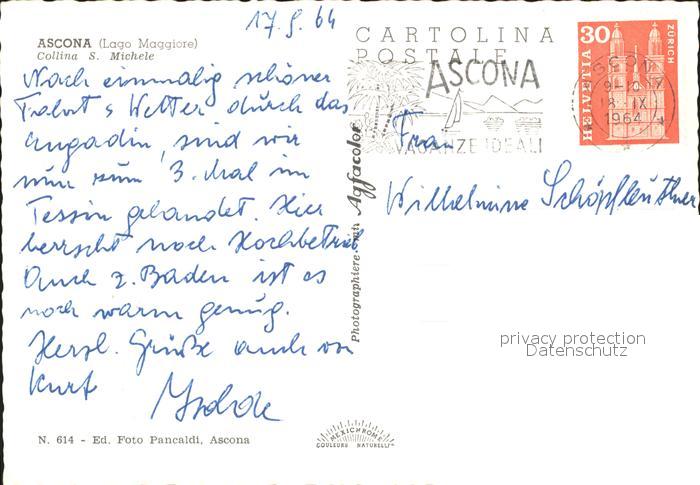 17. 9. 64
ASCONA (Lago Maggiore)
Collina S. Michele
Nach einmalig schöner
Fahrt & Wetter durch das
Engadin, sind wir
nun zum 3. Mal im
Tessin gelandet. Hier
herrscht noch Hochbetrieb
Auch z. Baden ist es
noch warm genug.
Herzl. Grüße auch von
Kurt
Isolde
N. 614 - Ed. Foto Pancaldi, Ascona
Photographiere mit Agfacolor
CARTOLINA
POSTALE
ASCONA
VACANZE IDEALI
30
HELVETIA
ZÜRICH
ASCONA
18. IX
1964
Frau
Wilhelmine Schöpfleuthner
privacy protection
Datenschutz
MEXICHROME
COULEURS NATURELLES